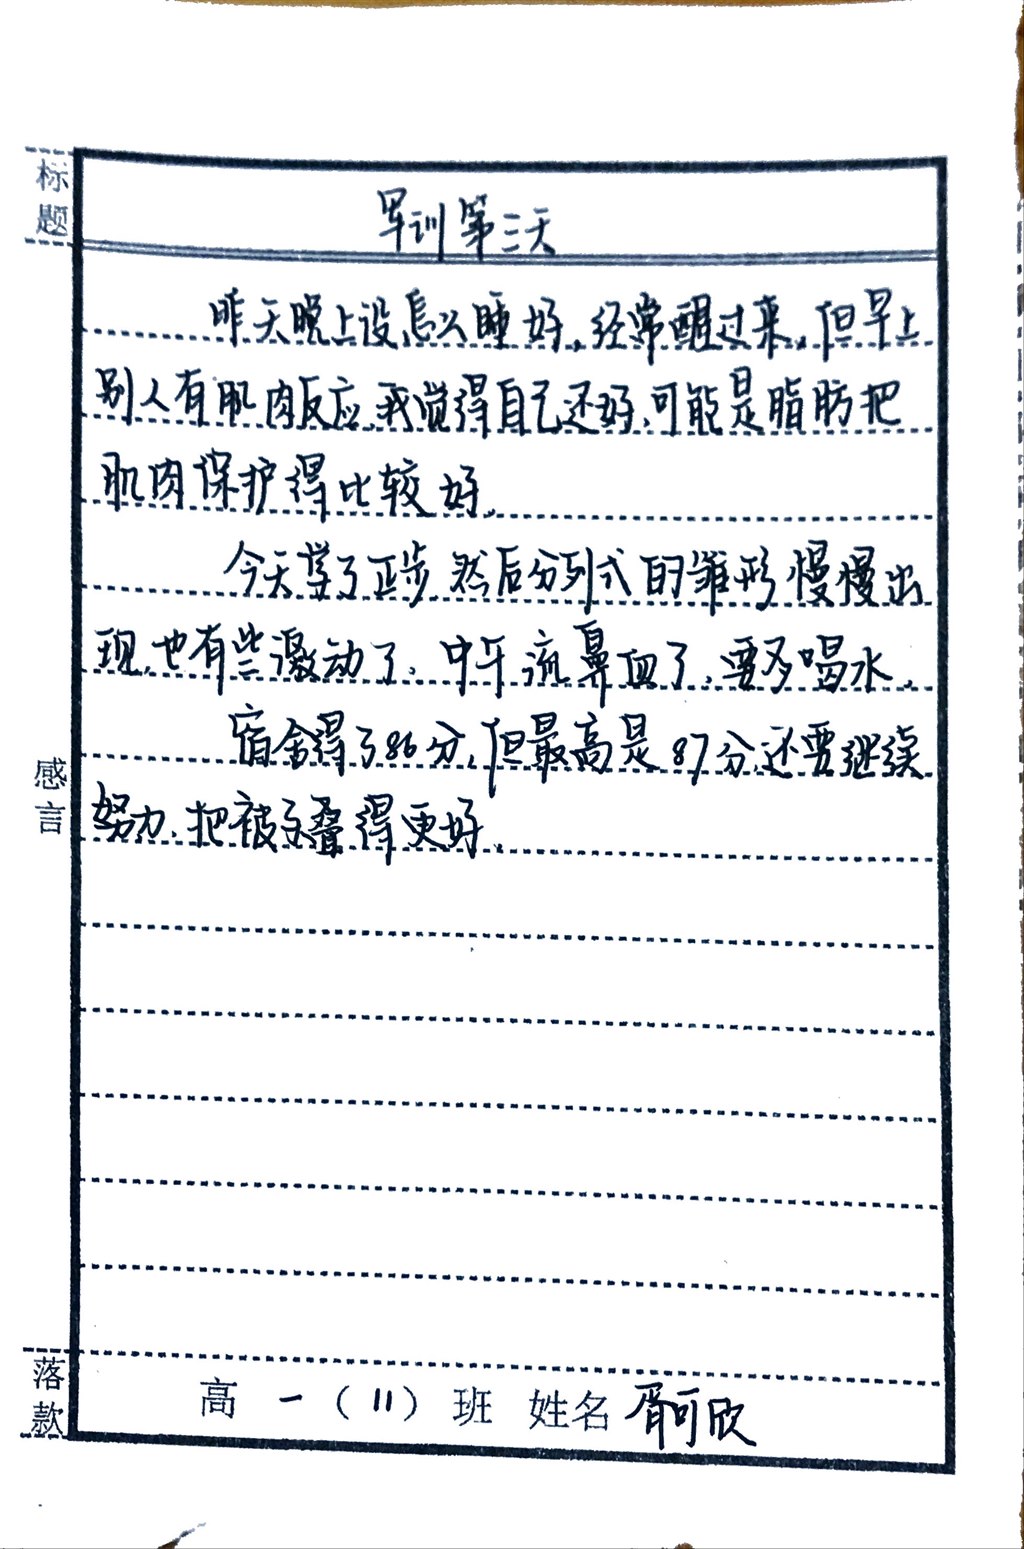 标题
军训第三天
昨天晚上没怎么睡好,经常醒过来,但早上
别人有肌肉反应,我觉得自己还好,可能是脂肪把
肌肉保护得比较好。
今天学了正步,然后分列式的雏形慢慢出
现,也有些激动了。中午流鼻血了,要多喝水。
感言
宿舍得了86分,但最高是87分,还要继续
努力,把被子叠得更好。
落款
高一(11)班 姓名 胥可欣